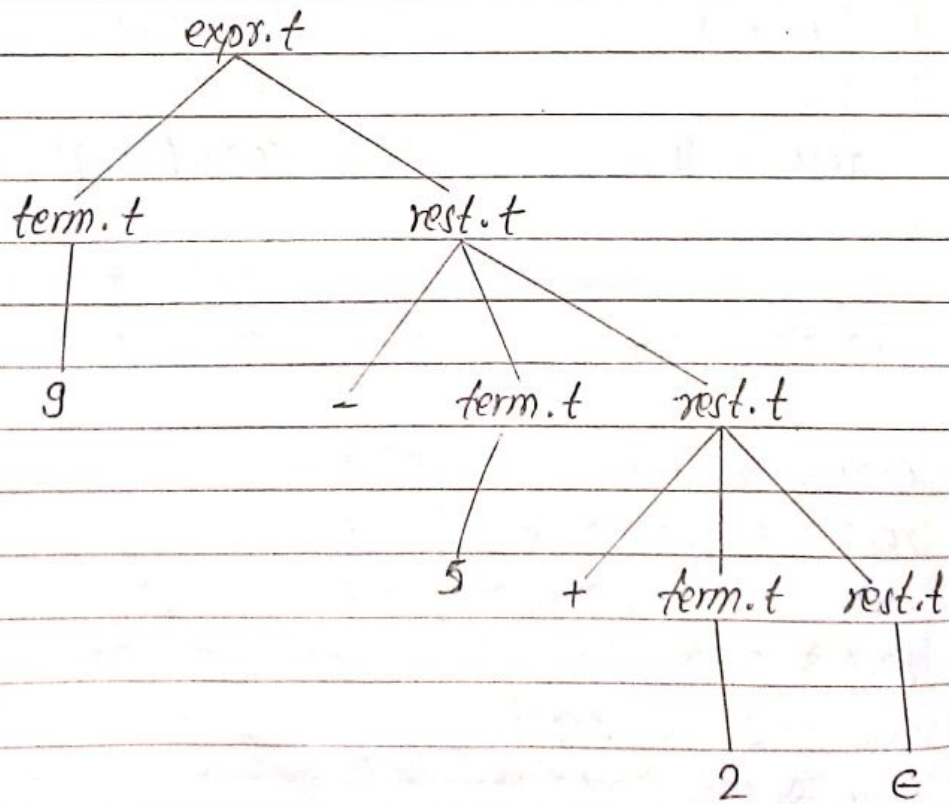 expr.t
term.t rest.t
9 - term.t rest.t
5 + term.t rest.t
2 ϵ